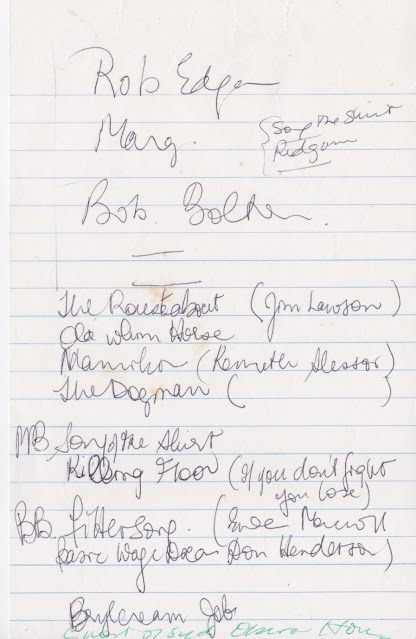 Rob Edgar
Marg.
Song of the Shirt
Redgum
Bob Bolton.
The Roustabout (Jim Lawson)
Old Whim Horse
(Kenneth Slessor)
The Dogman ( )
MB Song of the Shirt
Killing Floor (If you don't fight
you lose)
BB Fitter Song. (Ewan MacColl
Basic Wage Dream Don Henderson)
Brylcream Job